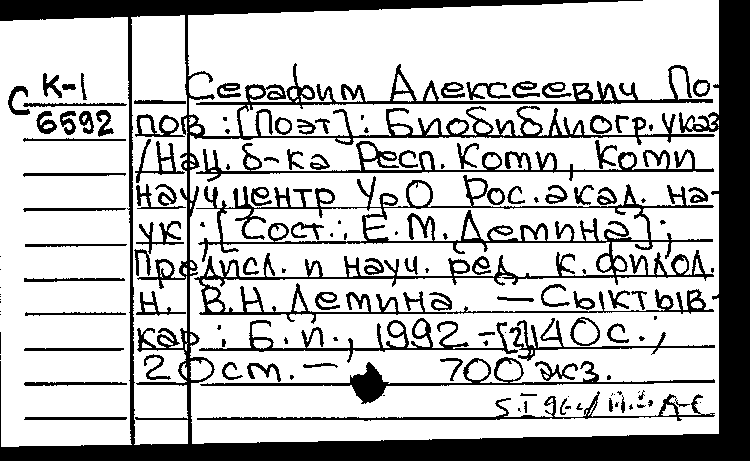 С К-1
6592
Серафим Алексеевич По-
пов : [Поэт] : Биобиблиогр. указ
/Нац. б-ка Респ. Коми, Коми
науч. центр УрО Рос. акад. на-
ук ; [Сост.: Е.М. Демина] ;
Предисл. и науч. ред. к. филол.
н. В.Н. Демина. — Сыктыв-
кар : Б. и., 1992. - [2], 40 с. ;
20 см. — 700 экз.